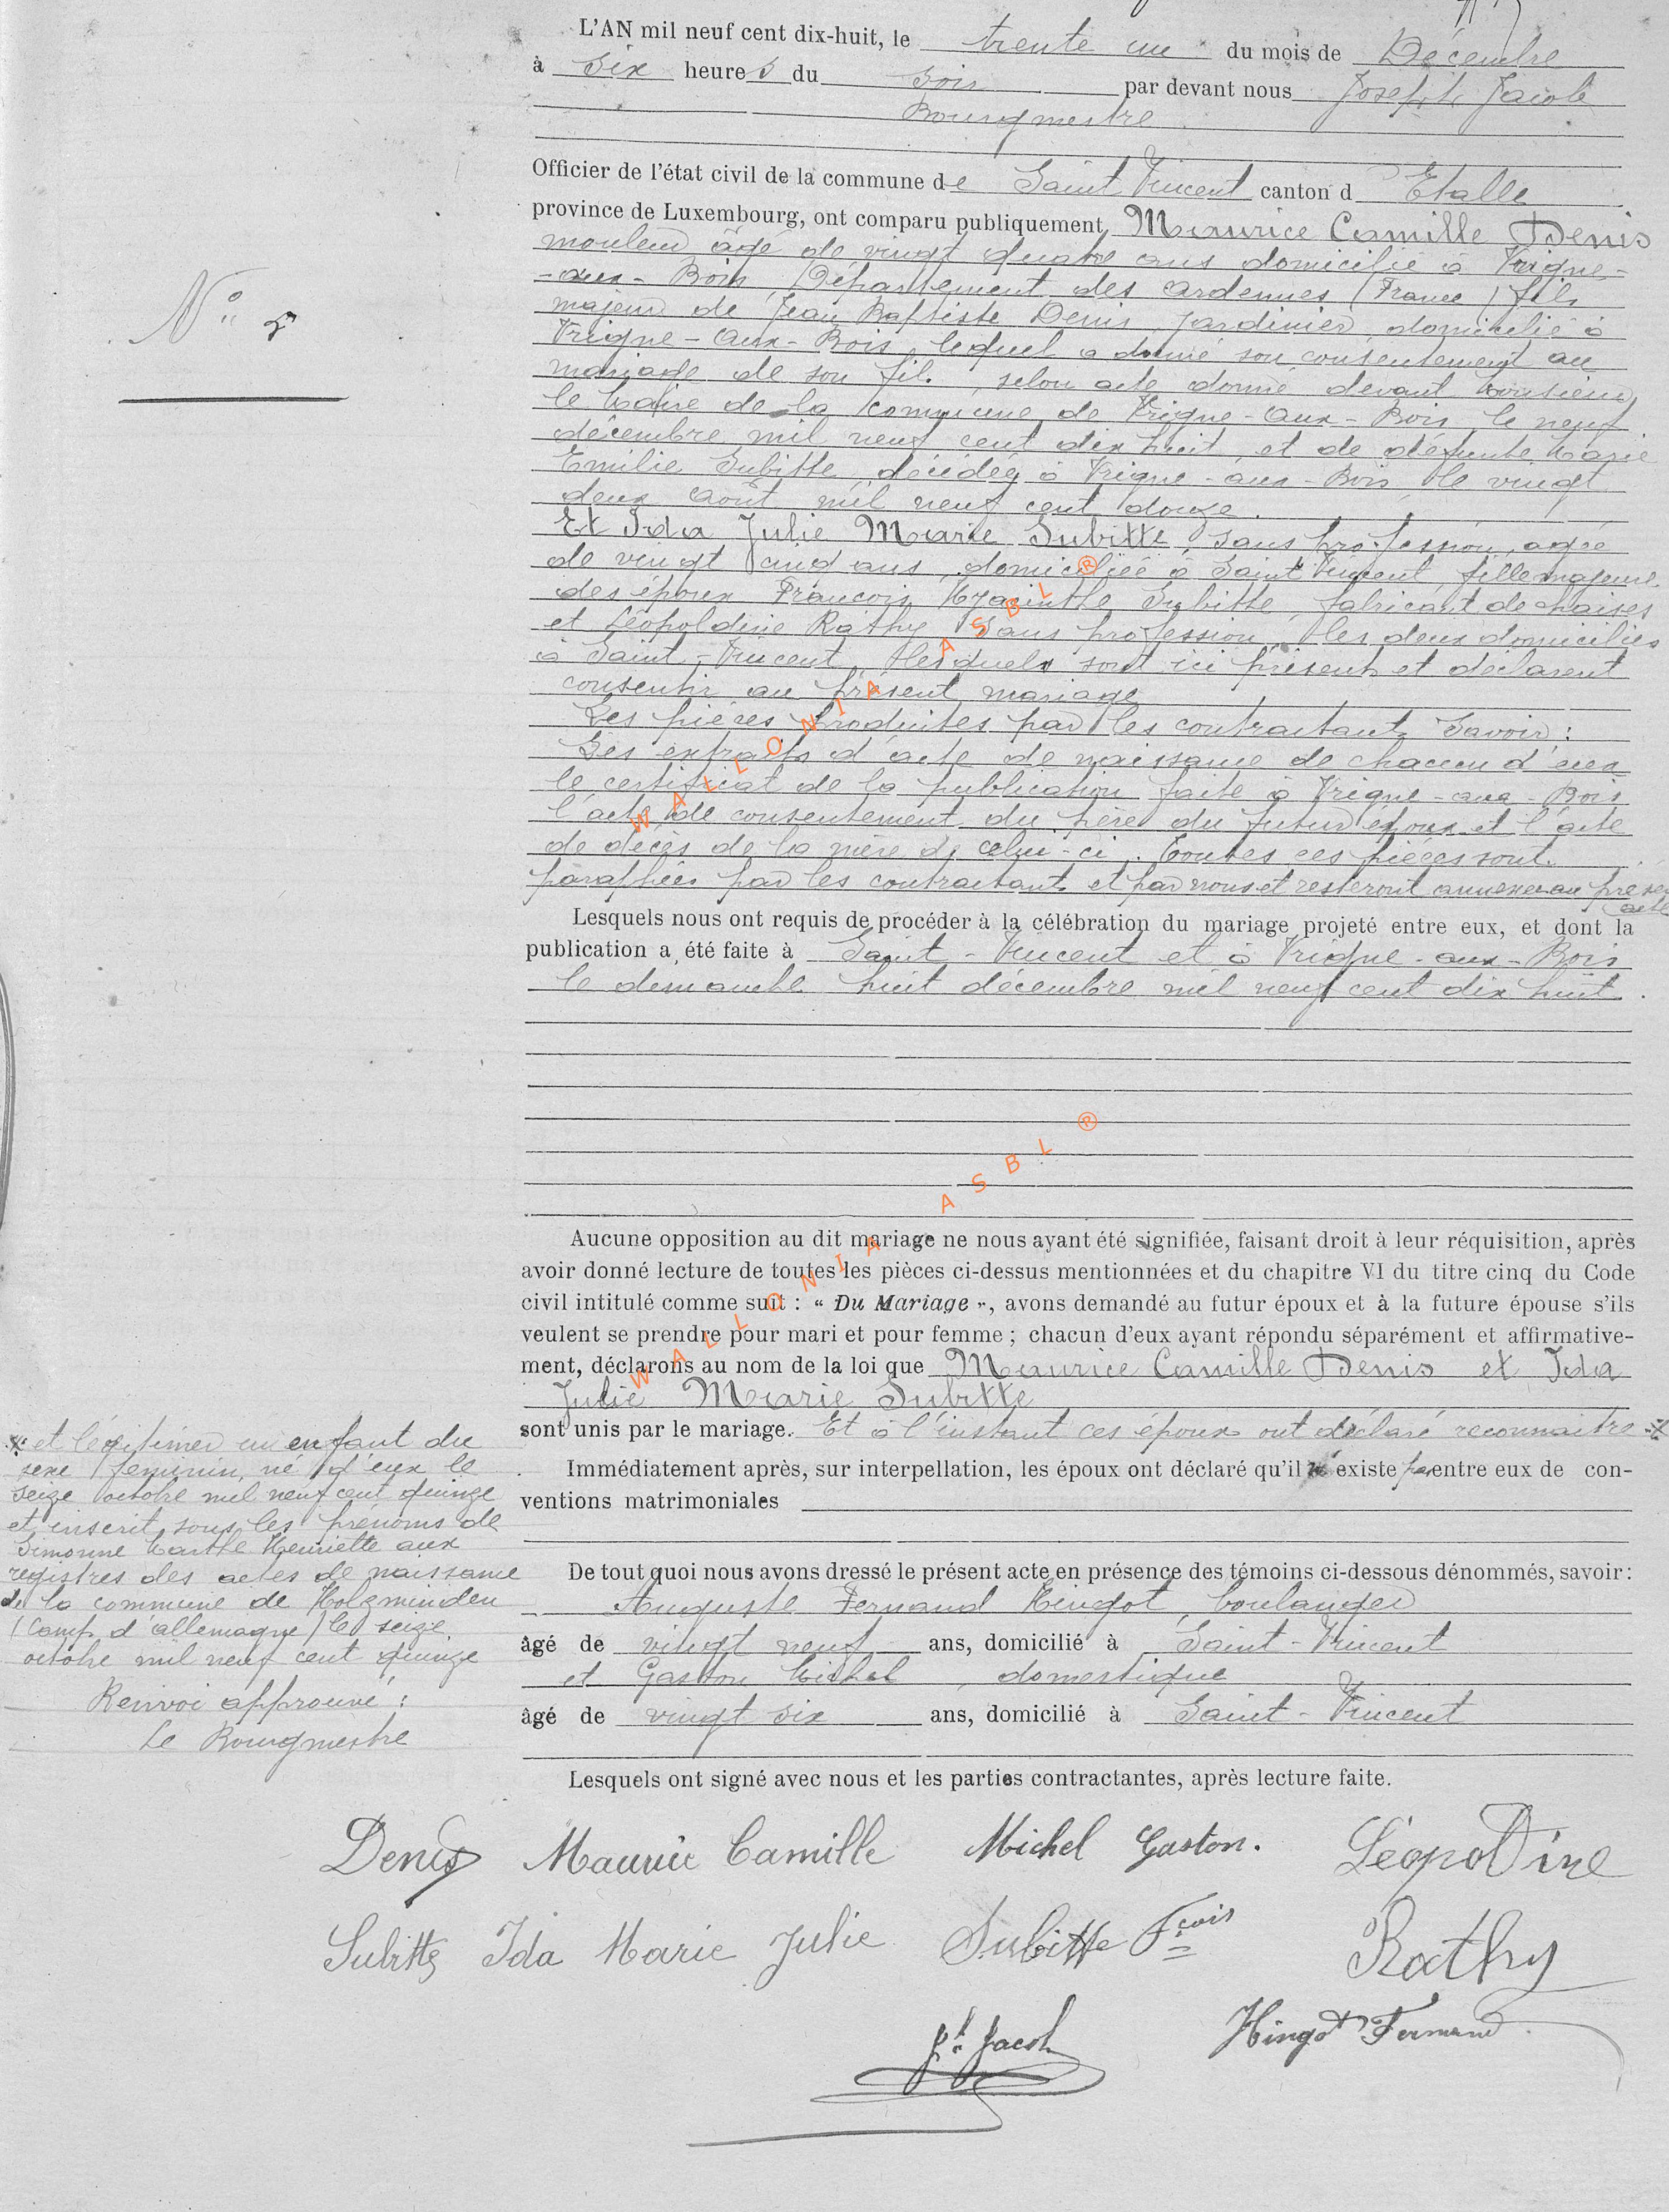 L'AN mil neuf cent dix-huit, le trente un du mois de Décembre
à Six heures du soir par devant nous Joseph Jacob
Bourgmestre
Officier de l'état civil de la commune de Saint Vincent canton d Etalle
province de Luxembourg, ont comparu publiquement Maurice Camille Denis
mouleur âgé de vingt quatre ans domicilié à Vrigne-
-aux-Bois (Département des Ardennes (France) fils
majeur de Jean Baptiste Denis, jardinier, domicilié à
Vrigne-aux-Bois, lequel a donné son consentement au
mariage de son fils, selon acte donné devant Monsieur
le Maire de la commune de Vrigne-aux-Bois, le neuf
décembre mil neuf cent dix huit et de défunte Marie
Emilie Subitte, décédée à Vrigne-aux-Bois le vingt
deux août mil neuf cent douze.
Et Ida Julie Marie Subitte, sans profession, agée
de vingt cinq ans, domiciliée à Saint Vincent, fille majeure
des époux François Hyacinthe Subitte, fabricant de chaises
et Léopoldine Rathy, sans profession, les deux domiciliés
à Saint-Vincent, lesquels sont ici présents et déclarent
consentir au présent mariage
Les pièces produites par les contractants savoir :
Les extraits d'acte de naissance de chacun d'eux
le certificat de la publication faite à Vrigne-aux-Bois
l'acte de consentement du père du futur époux et l'acte
de décès de la mère de celui-ci. Toutes ces pièces sont
paraphées par les contractants et par nous et resteront annexées au présent
acte
Lesquels nous ont requis de procéder à la célébration du mariage projeté entre eux, et dont la
publication a été faite à Saint-Vincent et à Vrigne-aux-Bois
le dimanche huit décembre mil neuf cent dix huit.
Aucune opposition au dit mariage ne nous ayant été signifiée, faisant droit à leur réquisition, après
avoir donné lecture de toutes les pièces ci-dessus mentionnées et du chapitre VI du titre cinq du Code
civil intitulé comme suit : « Du Mariage », avons demandé au futur époux et à la future épouse s'ils
veulent se prendre pour mari et pour femme ; chacun d'eux ayant répondu séparément et affirmative-
ment, déclarons au nom de la loi que Maurice Camille Denis et Ida
Julie Marie Subitte
sont unis par le mariage. Et à l'instant ces époux ont déclaré reconnaitre
Immédiatement après, sur interpellation, les époux ont déclaré qu'il n'existe pas entre eux de con-
ventions matrimoniales
De tout quoi nous avons dressé le présent acte en présence des témoins ci-dessous dénommés, savoir :
Auguste Fernand Hingot, boulanger
âgé de vingt neuf ans, domicilié à Saint-Vincent
et Gaston Michel, domestique
âgé de vingt six ans, domicilié à Saint-Vincent
Lesquels ont signé avec nous et les parties contractantes, après lecture faite.
N° 5
et légitimer un enfant du
sexe féminin, né d'eux le
seize octobre mil neuf cent quinze
et inscrit sous les prénoms de
Simonne Marthe Henriette aux
registres des actes de naissance
de la commune de Holzminden
(Camp d'allemagne) le seize
octobre mil neuf cent quinze
Renvoi approuvé :
Le Bourgmestre
Denis Maurice Camille Michel Gaston. Léopoldine
Subitte Ida Marie Julie Subitte Fçois Rathy
Jh Jacob Hingot Fernand
WALLONIA ASBL ®
WALLONIA ASBL ®